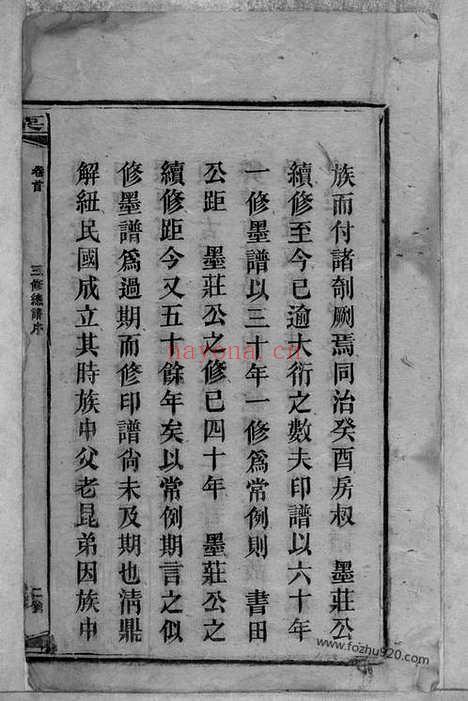 族而付諸剞劂焉同治癸酉房叔　墨莊公
續修至今已逾大衍之數夫印譜以六十年
一修墨譜以三十年一修爲常例則　書田
公距　墨莊公之修已四十年　墨莊公之
續修距今又五十餘年矣以常例期言之似
修墨譜爲過期而修印譜尚未及期也清鼎
解紐民國成立其時族中父老昆弟因族中
卷首
三修總譜序
hayona.cn
www.fozhu920.com